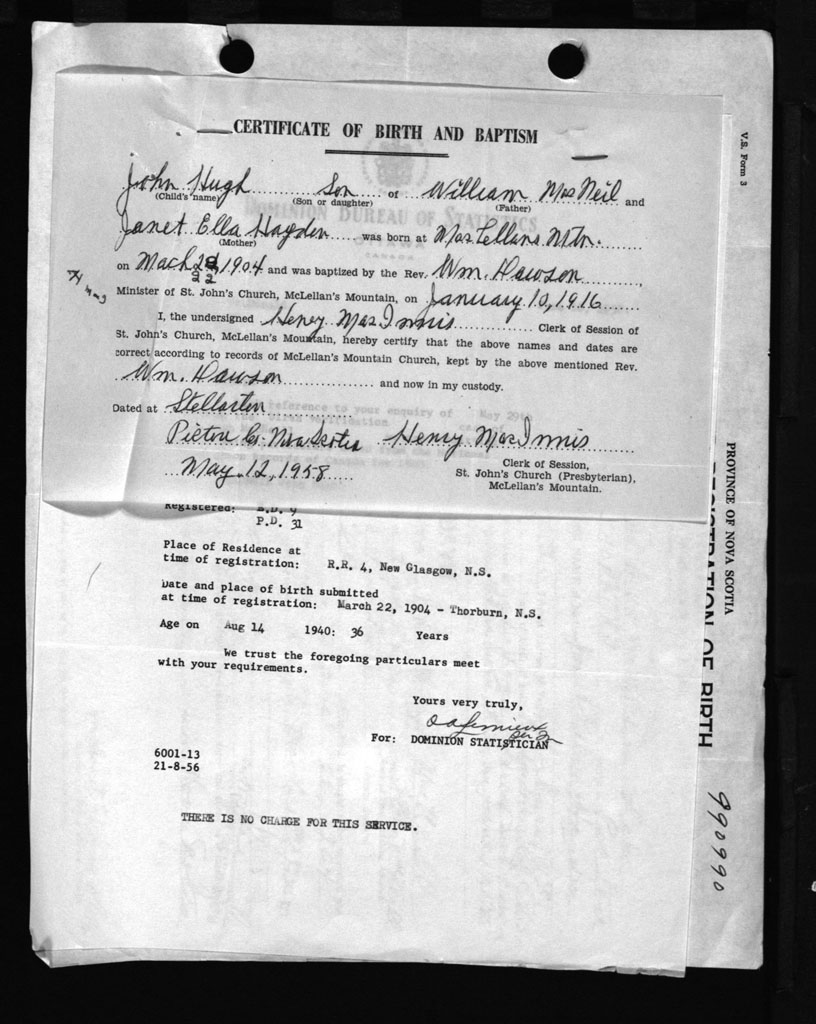 CERTIFICATE OF BIRTH AND BAPTISM
John Hugh Son of William MacNeil and
(Child's name) (Son or daughter) (Father)
DOMINION BUREAU OF STATISTICS
CANADA
Janet Ella Hayden was born at MacLellans Mtn.
(Mother)
on Mach 22, 1904 and was baptized by the Rev. Wm. Dawson,
22
Minister of St. John's Church, McLellan's Mountain, on January 10, 1916
I, the undersigned Henry MacInnis Clerk of Session of
St. John's Church, McLellan's Mountain, hereby certify that the above names and dates are
correct according to records of McLellan's Mountain Church, kept by the above mentioned Rev.
Wm. Dawson and now in my custody.
Dated at Stellarton
Pictou Co. Nova Scotia Henry MacInnis
May 12, 1958
Clerk of Session,
St. John's Church (Presbyterian),
McLellan's Mountain.
Registered: E.D. 9
P.D. 31
Place of Residence at
time of registration: R.R. 4, New Glasgow, N.S.
Date and place of birth submitted
at time of registration: March 22, 1904 - Thorburn, N.S.
Age on Aug 14 1940: 36 Years
We trust the foregoing particulars meet
with your requirements.
Yours very truly,
For: DOMINION STATISTICIAN
6001-13
21-8-56
THERE IS NO CHARGE FOR THIS SERVICE.
V.S. Form 3
PROVINCE OF NOVA SCOTIA
REGISTRATION OF BIRTH
990990